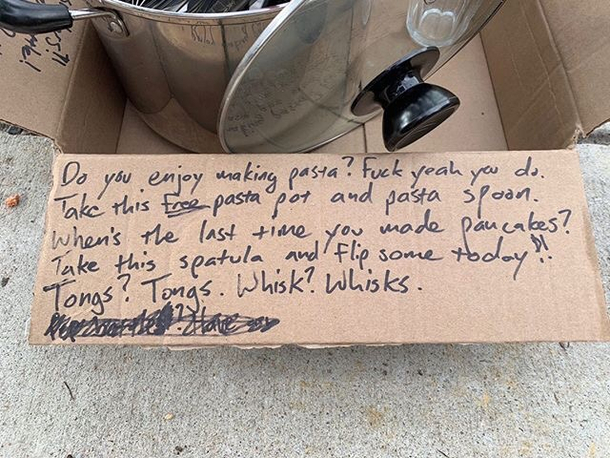 Do you enjoy making pasta? Fuck yeah you do.
Take this free pasta pot and pasta spoon.
When's the last time you made pancakes?
Take this spatula and flip some today!!
Tongs? Tongs. Whisk? Whisks.